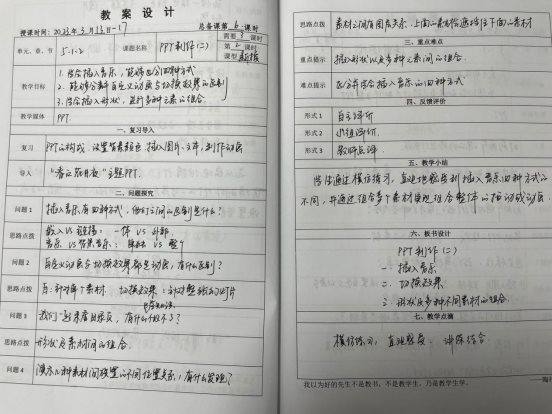 教案设计
授课时间: 2023年3月13日-17 总备课第6课时
单元、章、节 5.1.2 课题名称 PPT制作(二) 需要3课时
第2课时
课型 新授
教学目标
1.学会插入音乐,能够区分四种方式
2.能够分辨自定义动画与切换效果的区别
3.学会插入形状,进行多种元素的组合.
教学媒体 PPT.
一、复习导入
复习 PPT的构成、设置背景颜色、插入图片、文本,制作动画
导入 "春江花月夜"主题PPT.
二、问题探究
问题1 插入音乐有四种方式,他们之间的区别是什么?
思路点拨 嵌入 VS 链接: 一体 VS 外部.
音乐 VS 背景音乐: 单独 VS 整个
问题2 自定义动画与切换效果都是动画,有什么区别?
思路点拨 自:针对单个素材. 切换效果:针对整张幻灯片
问题3 我们一起来看目录页,有什么不同?
思路点拨 形状及素材间的组合.
问题4 演示几种素材间放置的不同位置关系,有什么发现?
思路点拨 素材之间有图层关系,上面的素材会遮挡住下面的素材
三、重点难点
重点提示 插入形状以及多种元素间的组合.
难点提示 区分并学会插入音乐的四种方式
四、反馈评价
形式1 自主评价
形式2 小组评价.
形式3 教师点评.
五、教学小结
学生通过模仿练习,直观地感受到插入音乐四种方式的
不同,并通过组合多个素材实现组合整体的播动或动画.
六、板书设计
PPT制作(二)
一. 插入音乐
二. 切换效果.
三. 形状以及多种不同素材的组合.
七、教学点滴
模仿练习,直观感受,讲练结合.
我以为好的先生不是教书,不是教学生,乃是教学生学。